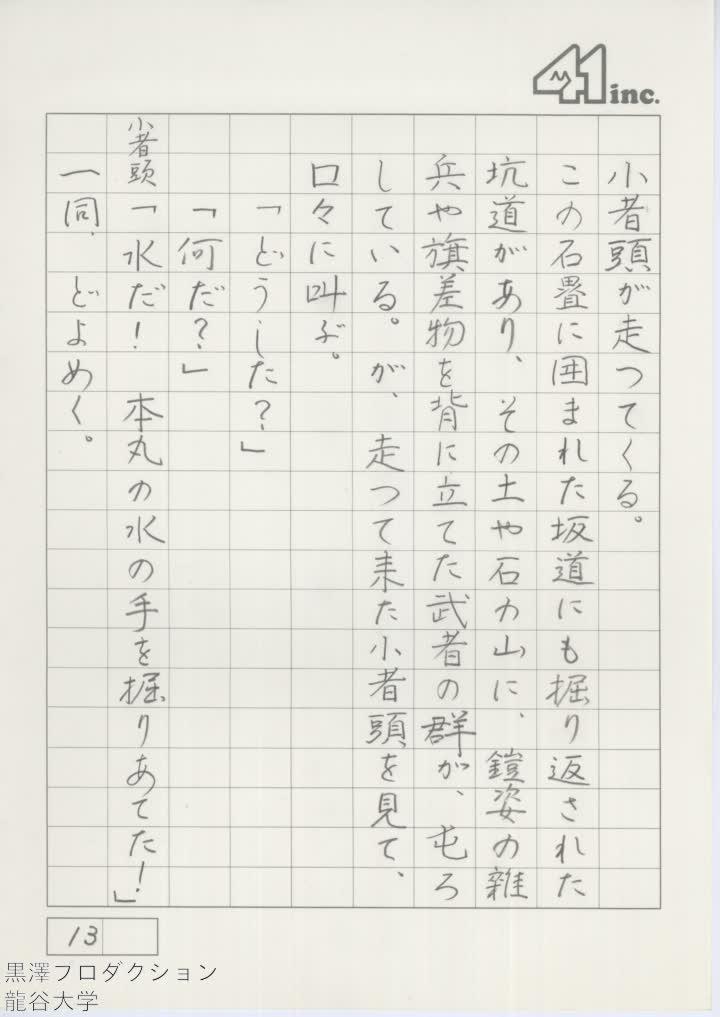 41 inc.
小者頭が走つてくる。
この石畳に囲まれた坂道にも掘り返された
坑道があり、その土や石の山に、鎧姿の雑
兵や旗差物を背に立てた武者の群が、屯ろ
している。が、走つて来た小者頭を見て、
口々に叫ぶ。
「どうした?」
「何だ?」
小者頭「水だ! 本丸の水の手を掘りあてた!」
一同、どよめく。
13
黒澤プロダクション
龍谷大学